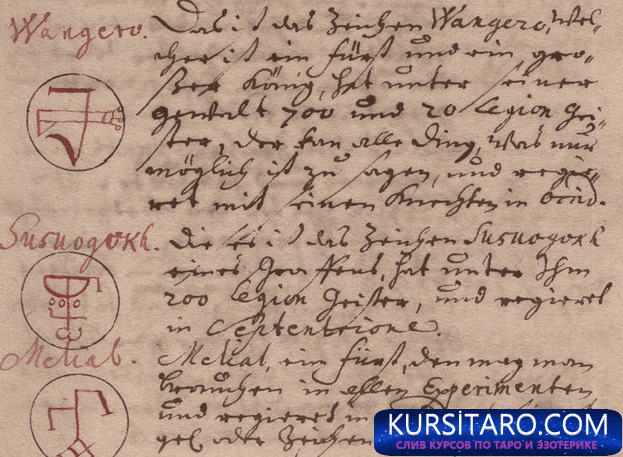 Wangero.
Das ist das Zeichen Wangero, wel-
cher ist ein fürst und ein gro-
ßer König, hat unter seiner
gewalt 700 und 20 Legion Gei-
ster, der kan alle Ding, was nur
möglich ist zu sagen, und regie-
ret mit seinen Knechten in Occid.
Susuogokh.
Die ses ist das Zeichen Susuogokh
eines Graffens, hat unter Ihm
200 Legion Geister, und regieret
in Septentrione.
Melial.
Melial, ein fürst, den mag man
brauchen in allen Experimenten
und regieret in
gel oder Zeichen
KURSITARO.COM
СЛИВ КУРСОВ ПО ТАРО И ЭЗОТЕРИКЕ